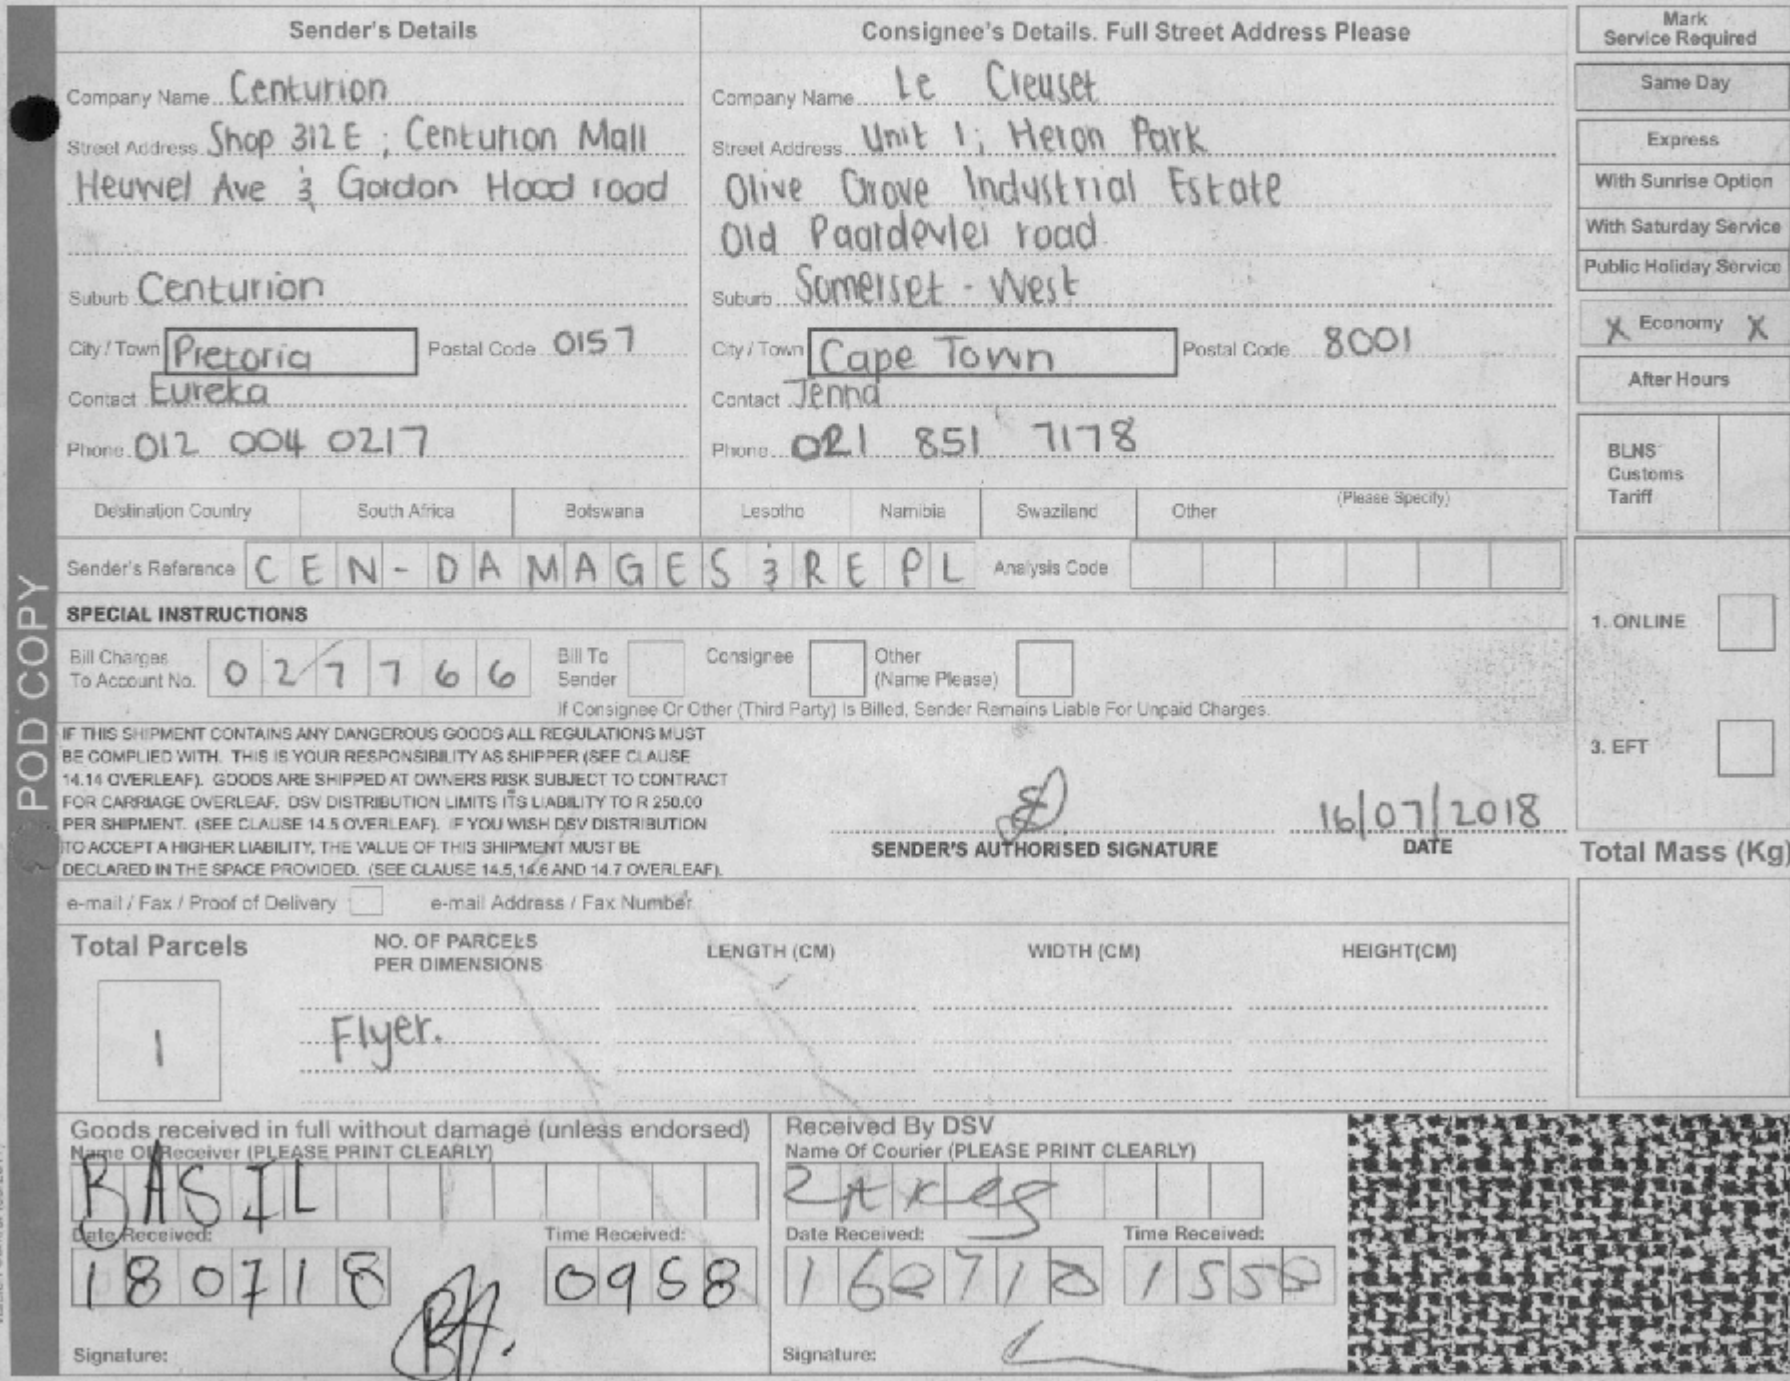 Sender's Details
Company Name Centurion
Street Address Shop 312E ; Centurion Mall
Heuwel Ave & Gordon Hood road
Suburb Centurion
City / Town Pretoria Postal Code 0157
Contact Eureka
Phone 012 004 0217
Consignee's Details. Full Street Address Please
Company Name Le Creuset
Street Address Unit 1; Heron Park
Olive Grove Industrial Estate
Old Paardevlei road
Suburb Somerset - West
City / Town Cape Town Postal Code 8001
Contact Jenna
Phone 021 851 7178
Mark
Service Required
Same Day
Express
With Sunrise Option
With Saturday Service
Public Holiday Service
X Economy X
After Hours
BLNS
Customs
Tariff
Destination Country South Africa Botswana Lesotho Namibia Swaziland Other (Please Specify)
Sender's Reference CEN-DAMAGES & REPL Analysis Code
SPECIAL INSTRUCTIONS
Bill Charges
To Account No. 027766
Bill To
Sender
Consignee
Other
(Name Please)
If Consignee Or Other (Third Party) Is Billed, Sender Remains Liable For Unpaid Charges.
1. ONLINE
3. EFT
IF THIS SHIPMENT CONTAINS ANY DANGEROUS GOODS ALL REGULATIONS MUST
BE COMPLIED WITH. THIS IS YOUR RESPONSIBILITY AS SHIPPER (SEE CLAUSE
14.14 OVERLEAF). GOODS ARE SHIPPED AT OWNERS RISK SUBJECT TO CONTRACT
FOR CARRIAGE OVERLEAF. DSV DISTRIBUTION LIMITS ITS LIABILITY TO R 250.00
PER SHIPMENT. (SEE CLAUSE 14.5 OVERLEAF). IF YOU WISH DSV DISTRIBUTION
TO ACCEPT A HIGHER LIABILITY, THE VALUE OF THIS SHIPMENT MUST BE
DECLARED IN THE SPACE PROVIDED. (SEE CLAUSE 14.5,14.6 AND 14.7 OVERLEAF).
SENDER'S AUTHORISED SIGNATURE
16/07/2018
DATE
Total Mass (Kg)
e-mail / Fax / Proof of Delivery e-mail Address / Fax Number
Total Parcels
1
NO. OF PARCELS
PER DIMENSIONS
LENGTH (CM) WIDTH (CM) HEIGHT(CM)
Flyer.
Goods received in full without damage (unless endorsed)
Name Of Receiver (PLEASE PRINT CLEARLY)
BASIL
Date Received: Time Received:
180718 0958
Signature:
Received By DSV
Name Of Courier (PLEASE PRINT CLEARLY)
Date Received: Time Received:
160718 1550
Signature:
POD COPY